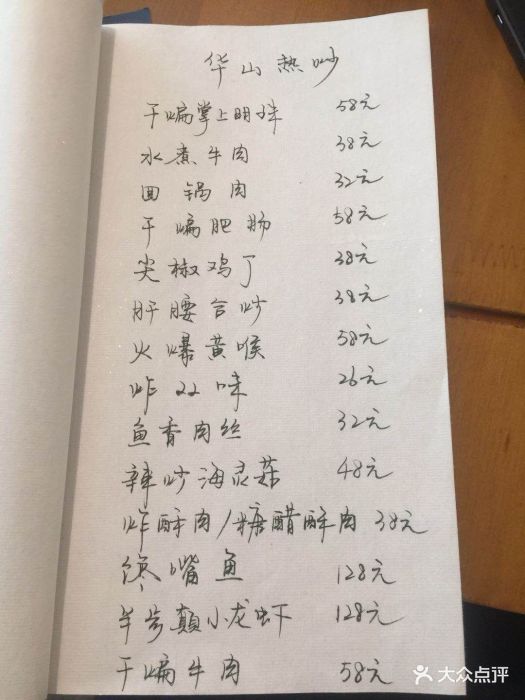 华山热吵
干煸掌上明珠 58元
水煮牛肉 38元
回锅肉 32元
干煸肥肠 58元
尖椒鸡丁 38元
肝腰合炒 38元
火爆黄喉 58元
炸双味 26元
鱼香肉丝 32元
辣炒海灵菇 48元
炸酥肉/糖醋酥肉 38元
馋嘴鱼 128元
半步颠小龙虾 128元
干煸牛肉 58元
大众点评